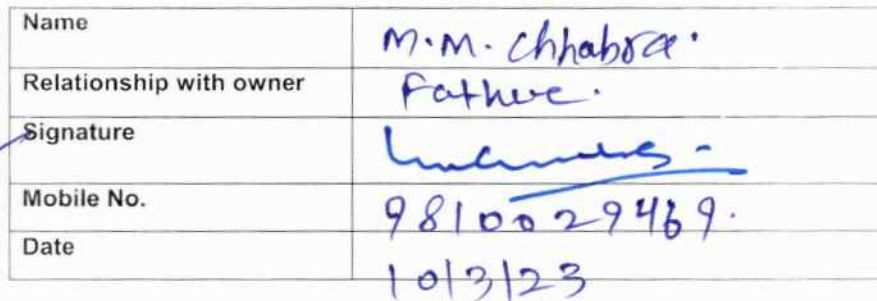 Name M.M. Chhabra.
Relationship with owner Father.
Signature
Mobile No. 9810029469.
Date 10/3/23